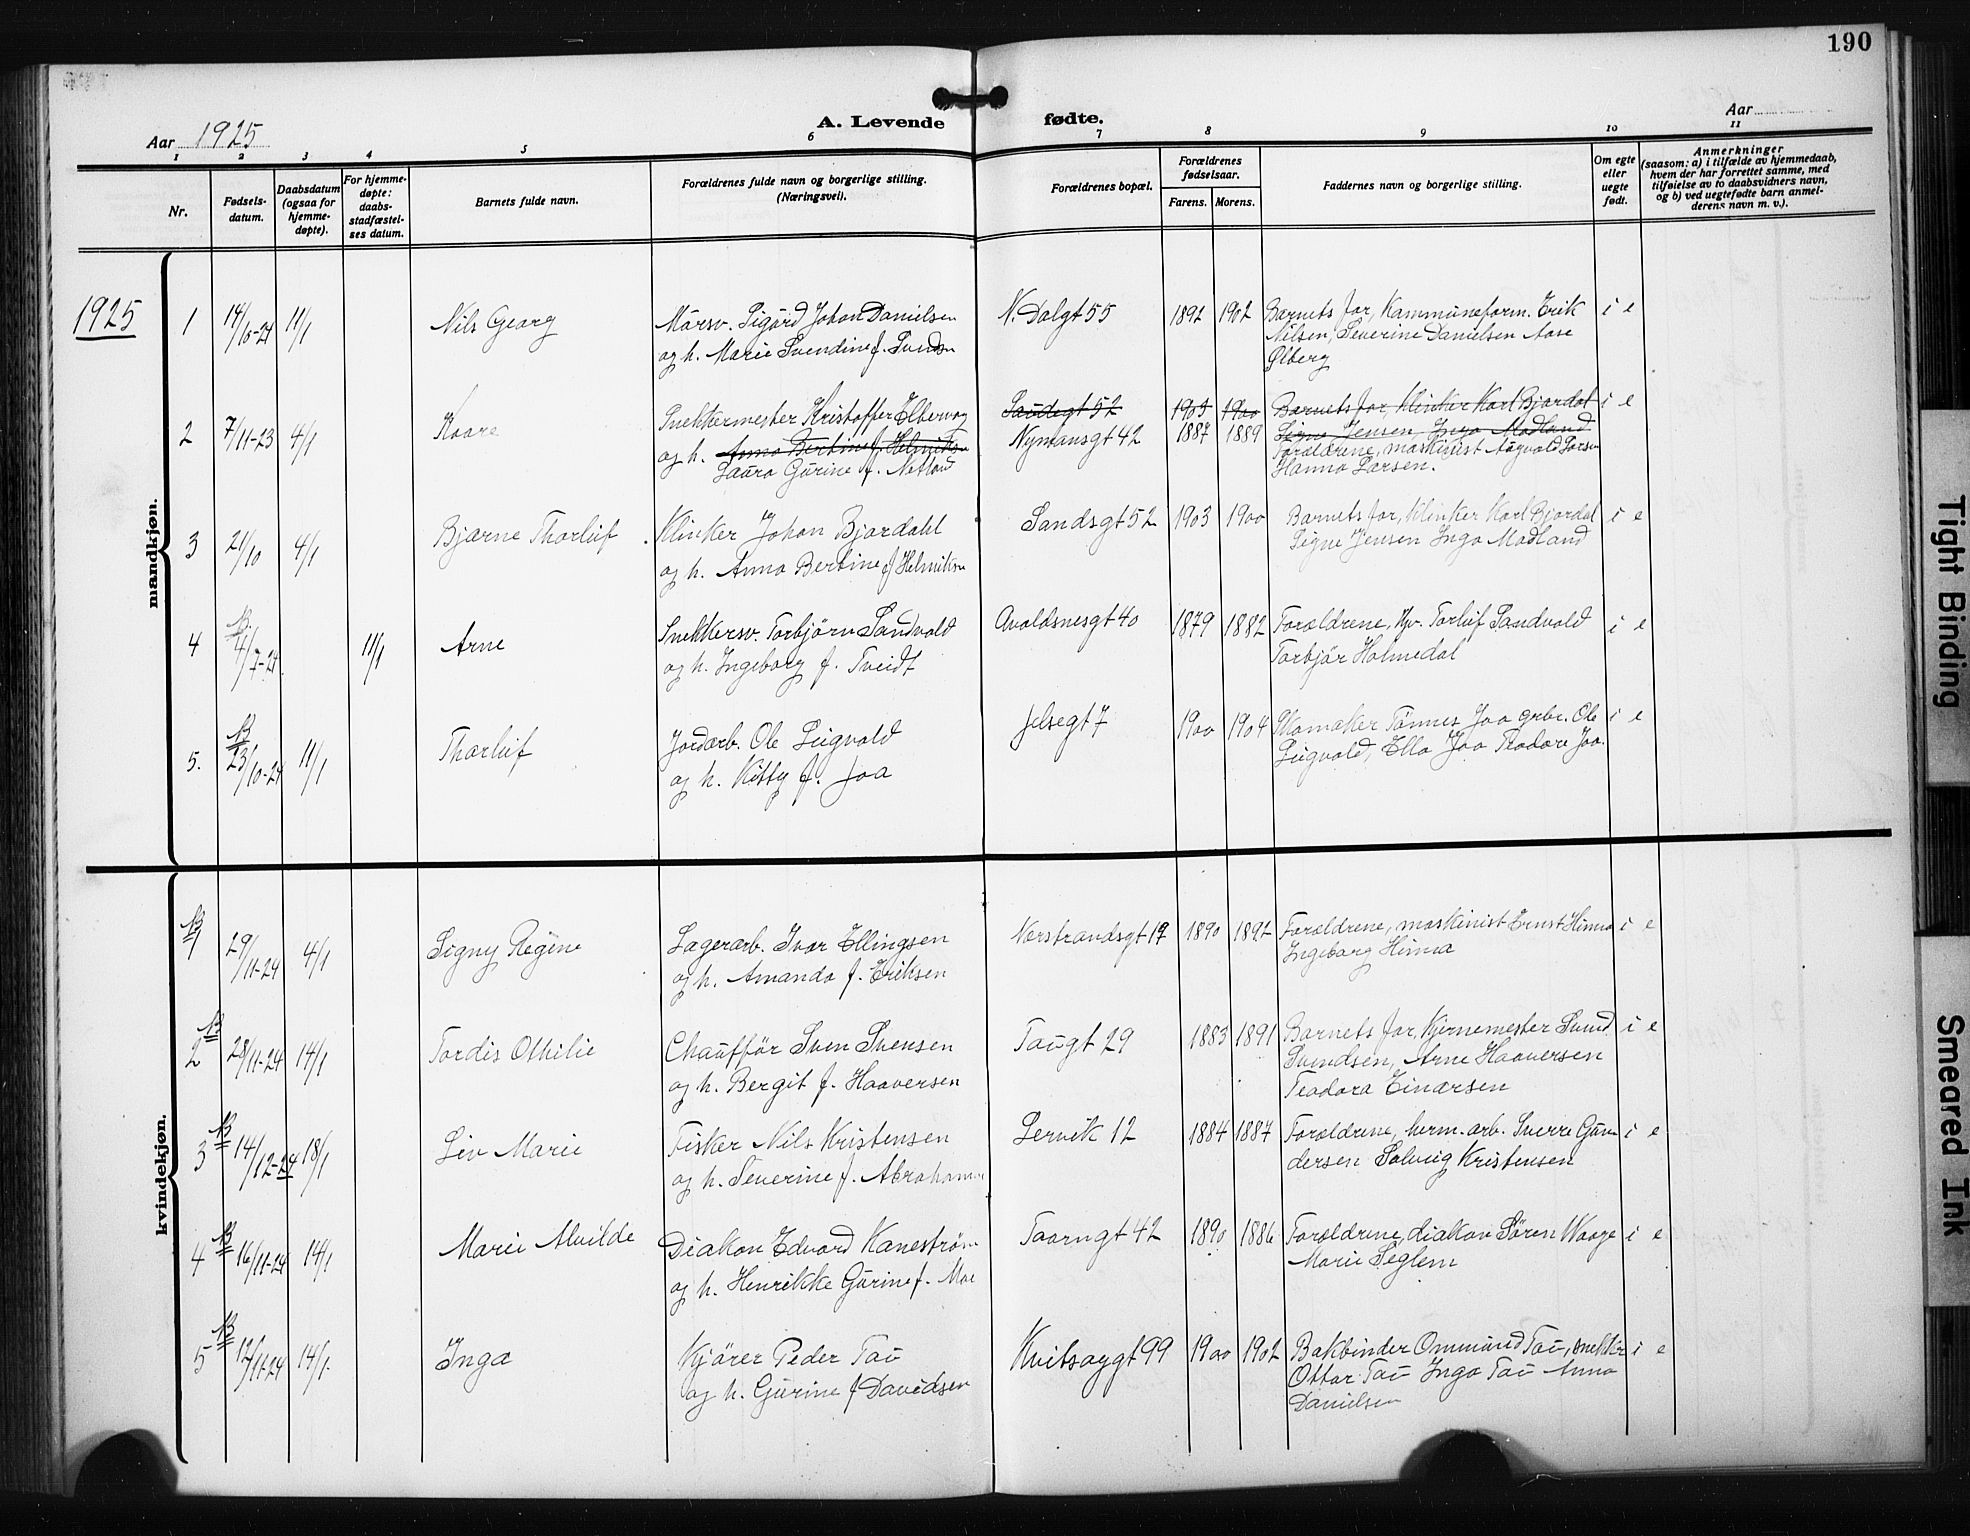 190
Aar 1925
A. Levende fødte.
Aar
1 2 3 4 5 6 7 8 9 10 11
Nr.
Fødsels-
datum.
Daabsdatum
(ogsaa for
hjemme-
døpte).
For hjemme-
døpte:
daabs-
stadfæstel-
ses datum.
Barnets fulde navn.
Forældrenes fulde navn og borgerlige stilling.
(Næringsvei).
Forældrenes bopæl.
Forældrenes
fødselsaar.
Farens. Morens.
Faddernes navn og borgerlige stilling.
Om egte
eller
uegte
født.
Anmerkninger
(saasom: a) i tilfælde av hjemmedaab,
hvem der har forrettet samme, med
tilføielse av to daabsvidners navn,
og b) ved uegtefødte barn anmel-
derens navn m. v.).
1925
mandkjøn.
1 14/10-24 11/1 Nils Georg Mursv. Sigurd Johan Danielsen N. Dalgt 55 1892 1902 Barnets far, Kommuneform. Erik i e
og h. Marie Svendine f. Svendsen Nilsen, Severine Danielsen Aase
Ølberg
2 7/11-23 4/1 Kaare Snekkermester Kristoffer Elbervag Saudegt 52 1903 1900 Barnets far, Klinker Karl Bjordal i e
og h. Anna Bertine f. Helmiksen Nymansgt 42 1887 1889 Signe Jensen Inga Madland
Laura Gurine f. Natland Forældrene, maskinist Aagvald Larsen
Hanna Larsen.
3 21/10 4/1 Bjarne Thorluf Klinker Johan Bjordahl Sandsgt 52 1903 1900 Barnets far, Klinker Karl Bjordal i e
og h. Anna Bertine f Helmiksen Signe Jensen Inga Madland
4 4/7-24 11/1 Arne Snekkersv. Torbjørn Sandvold Avaldsnesgt 40 1879 1882 Forældrene, Hv. Torluf Sandvold i e
og h. Ingeborg f. Tveidt Torbjør Holmedal
5. 23/10-24 11/1 Thorluf Jordarb. Ole Sugvald Jelsegt 7 1900 1904 Skomaker Tønnes Joa grbr. Ole i e
og h. Kitty f. Joa Sugvald, Ella Joa Teodore Joa.
kvindekjøn.
1 29/11-24 4/1 Signy Regine Lagerarb. Ivar Ellingsen Nerstrandsgt 19 1890 1892 Forældrene, maskinist Ernst Hinna i e
og h. Amanda f. Eriksen Ingeborg Hinna
2 28/11-24 14/1 Tordis Othilie Chauffør Sven Svensen Taugt 29 1883 1891 Barnets far, Kjernemester Svend i e
og h. Bergit f. Haaversen Svendsen, Arne Haaversen
Teodora Einarsen
3 14/12-24 18/1 Liv Marie Fisker Nils Kristensen Lervik 12 1884 1887 Forældrene, herm.arb. Sverre Gun i e
og h. Severine f. Abrahamsen dersen Solveig Kristensen
4 16/11-24 14/1 Marie Alvilde Diakon Edvard Kanestrøm Taarngt 42 1890 1886 Forældrene, diakon Søren Waage i e
og h. Henrikke Gurine f. Moe Marie Seglem
5 12/11-24 14/1 Inga Kjører Peder Tau Kvitsøygt 99 1900 1902 Bokbinder Ommund Tau, snekker i e
og h. Gurine f Davidsen Ottar Tau Inga Tau Anna
Danielsen
Tight Binding
Smeared Ink